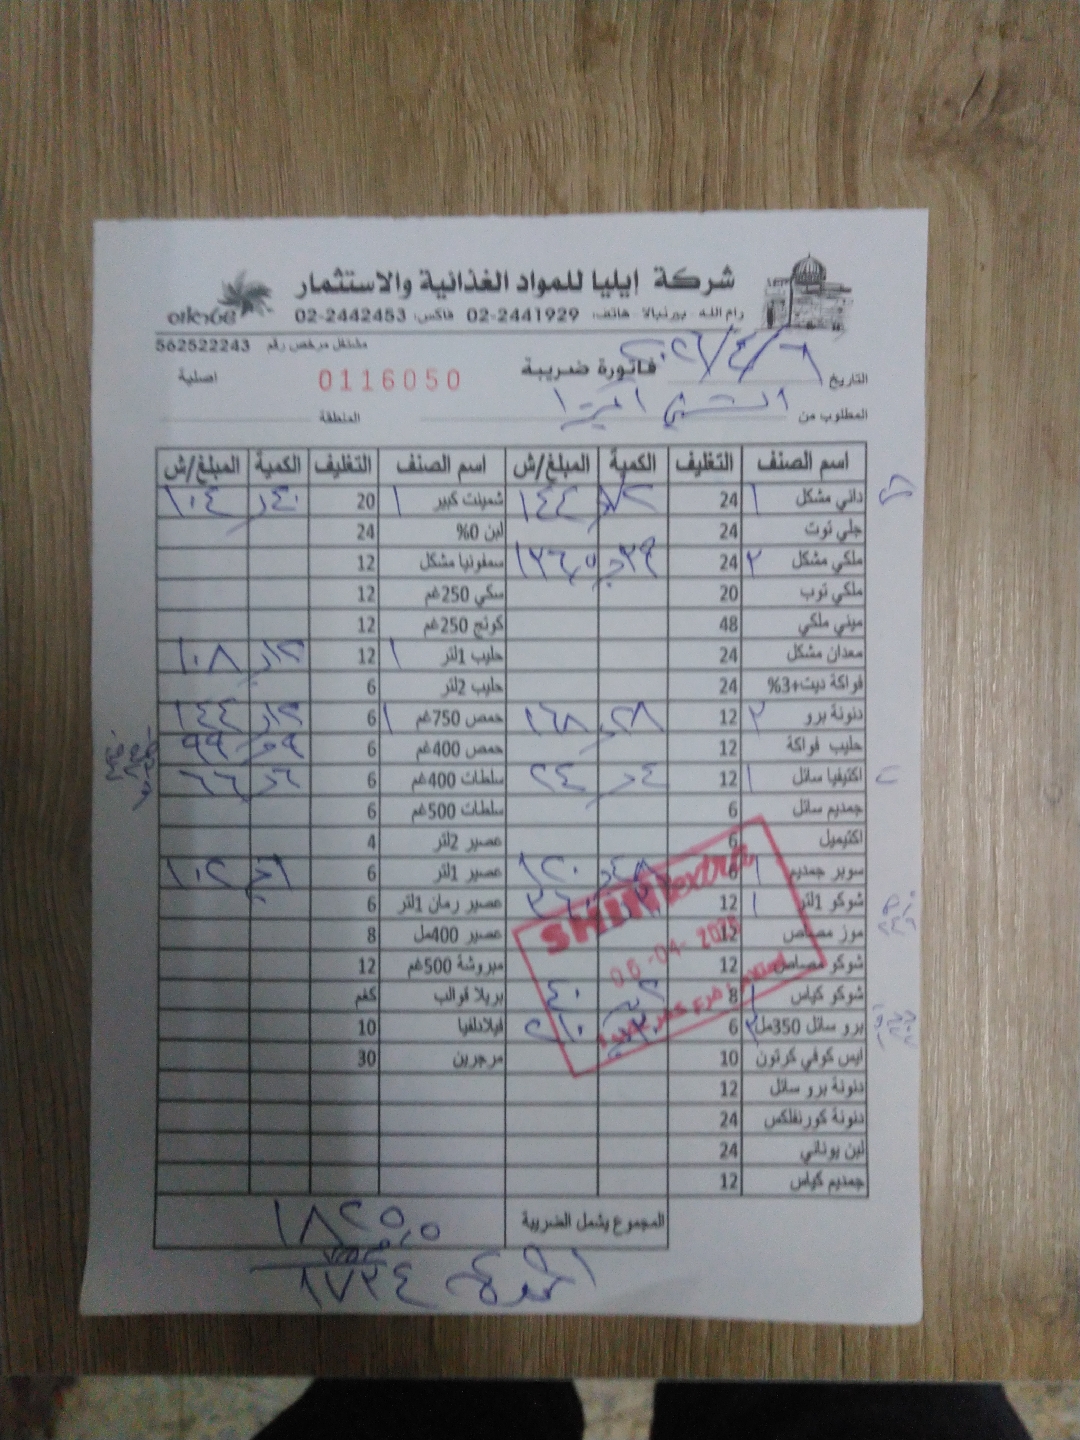 شركة إيليا للمواد الغذائية والاستثمار
رام الله - بيرنبالا - هاتف: 02-2441929 فاكس: 02-2442453
مشتغل مرخص رقم 562522243
فاتورة ضريبة
0116050
اصلية
التاريخ
المطلوب من
المنطقة
اسم الصنف التغليف الكمية المبلغ/ش اسم الصنف التغليف الكمية المبلغ/ش
داني مشكل ١ 24 ١٤٤ شمينت كبير ١ 20 ١٠٤
جلي توت 24 لبن 0% 24
ملكي مشكل ٢ 24 سمفونيا مشكل 12
ملكي توب 20 سكي 250غم 12
ميني ملكي 48 كوتج 250غم 12
معدان مشكل 24 حليب 1لتر ١ 12 ١٠٨
فواكة ديت+3% 24 حليب 2لتر 6
دنونة برو ٢ 12 ١٦٨ حمص 750غم ١ 6 ١٤٤
حليب فواكة 12 حمص 400غم 6 ٩٩
اكتيفيا سائل ١ 12 ٢٤ سلطات 400غم 6 ٦٦
جمديم سائل 6 سلطات 500غم 6
اكتيميل 6 عصير 2لتر 4
سوبر جمديم ١ 6 ١٢٠ عصير 1لتر 6 ١٠٢
شوكو 1لتر ١ 12 عصير رمان 1لتر 6
موز مصاص 12 عصير 400مل 8
شوكو مصاص 12 مبروشة 500غم 12
شوكو كياس ١ 8 ٤٠ بريلا قوالب كغم
برو سائل 350مل ٢ 6 فيلادلفيا 10
ايس كوفي كرتون 10 مرجرين 30
دنونة برو سائل 12
دنونة كورنفلكس 24
لبن يوناني 24
جمديم كياس 12
SHINI extra
06-04-2026
المجموع يشمل الضريبة